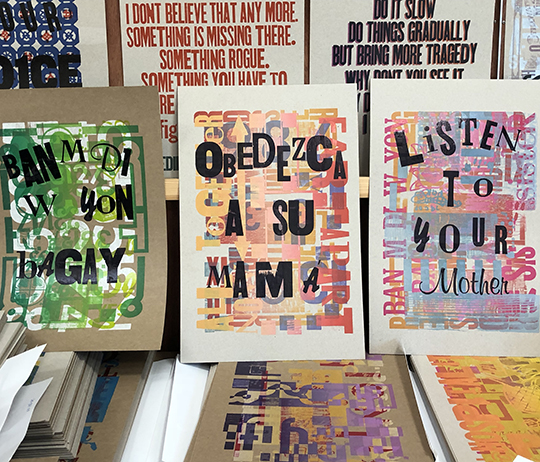 OUR
I DON'T BELIEVE THAT ANY MORE.
SOMETHING IS MISSING THERE.
SOMETHING ROGUE.
SOMETHING YOU HAVE TO
DO IT SLOW
DO THINGS GRADUALLY
BUT BRING MORE TRAGEDY
WHY DON'T YOU SEE IT
BAN M DI
W YON
BAGAY
OBEDEZCA
A SU
MAMÁ
LiSTEN
TO
YOUR
Mother
BAN M DI W YON